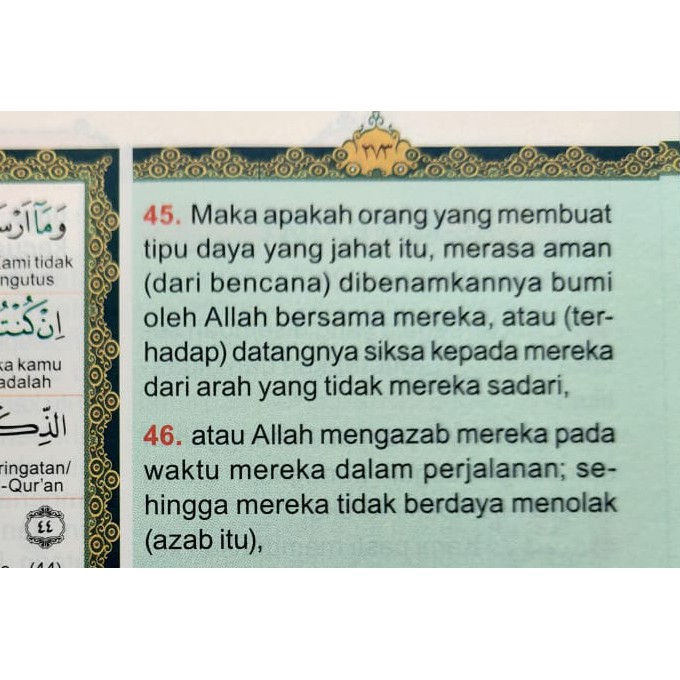 ٢٧٣
وَمَآ
ami tidak
ngutus
ka kamu
adalah
ringatan/
-Qur'an
٤٤
45. Maka apakah orang yang membuat
tipu daya yang jahat itu, merasa aman
(dari bencana) dibenamkannya bumi
oleh Allah bersama mereka, atau (ter-
hadap) datangnya siksa kepada mereka
dari arah yang tidak mereka sadari,
46. atau Allah mengazab mereka pada
waktu mereka dalam perjalanan; se-
hingga mereka tidak berdaya menolak
(azab itu),